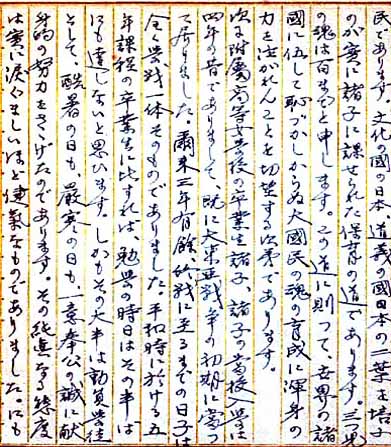 民であります。文化の国の日本、道義国日本の二葉を培ふ
のが実に諸子に課せられた保育の道であります。三つ子
の魂は百までと申します。この道に則つて、世界の諸
国に伍して恥づかしからぬ大国民の魂の育成に渾身の
力を注がれんことを切望する次第であります。
次に附属高等女学校の卒業生諸子、諸子の当校入学は
四年の昔でありまして、既に大東亜戦争の初期に当つ
て居りました。爾来三年有餘、終戦に至るまでの日子は
全く学戦一体そのものでありました。平和時に於ける五
年課程の卒業生に比すれば、勉学の時日はその半は
にも達しないと思ひます。しかもその大半は勤労学徒
として、酷暑の日も、厳寒の日も、一意奉公の誠に献
身的の努力をさゝげたのであります。その純真なる態度
は実に涙ぐましいほど健気なものでありました。にも